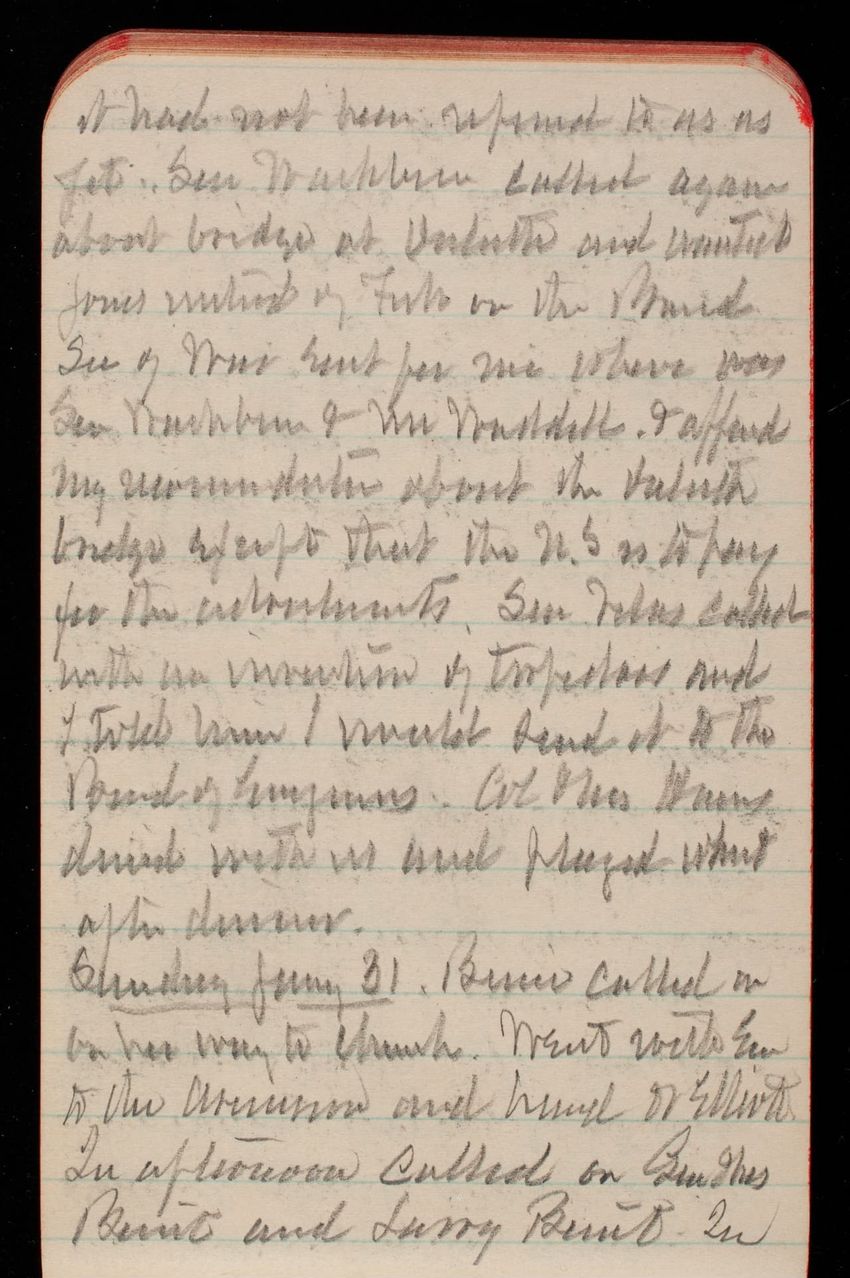 it had not been referred to us as
yet. Sen Washburn called again
about bridge at Duluth and wanted
Jones instead of Fisk on the Board
Sec of War sent for me where was
Sen Washburn & Mr Waddell. I affirmed
my recommendation about the Duluth
bridge except that the U.S is to pay
for the abutments. Sen called
with an invention of torpedoes and
I told him I would send it to the
Board of Engineers. Col & Mrs
dined with us and played whist
after dinner.
Sunday Jany 31. called on
on her way to church. Went with
to the and heard Dr Elliott
In afternoon called on Gen & Mrs
Benét and Larry Benét. In